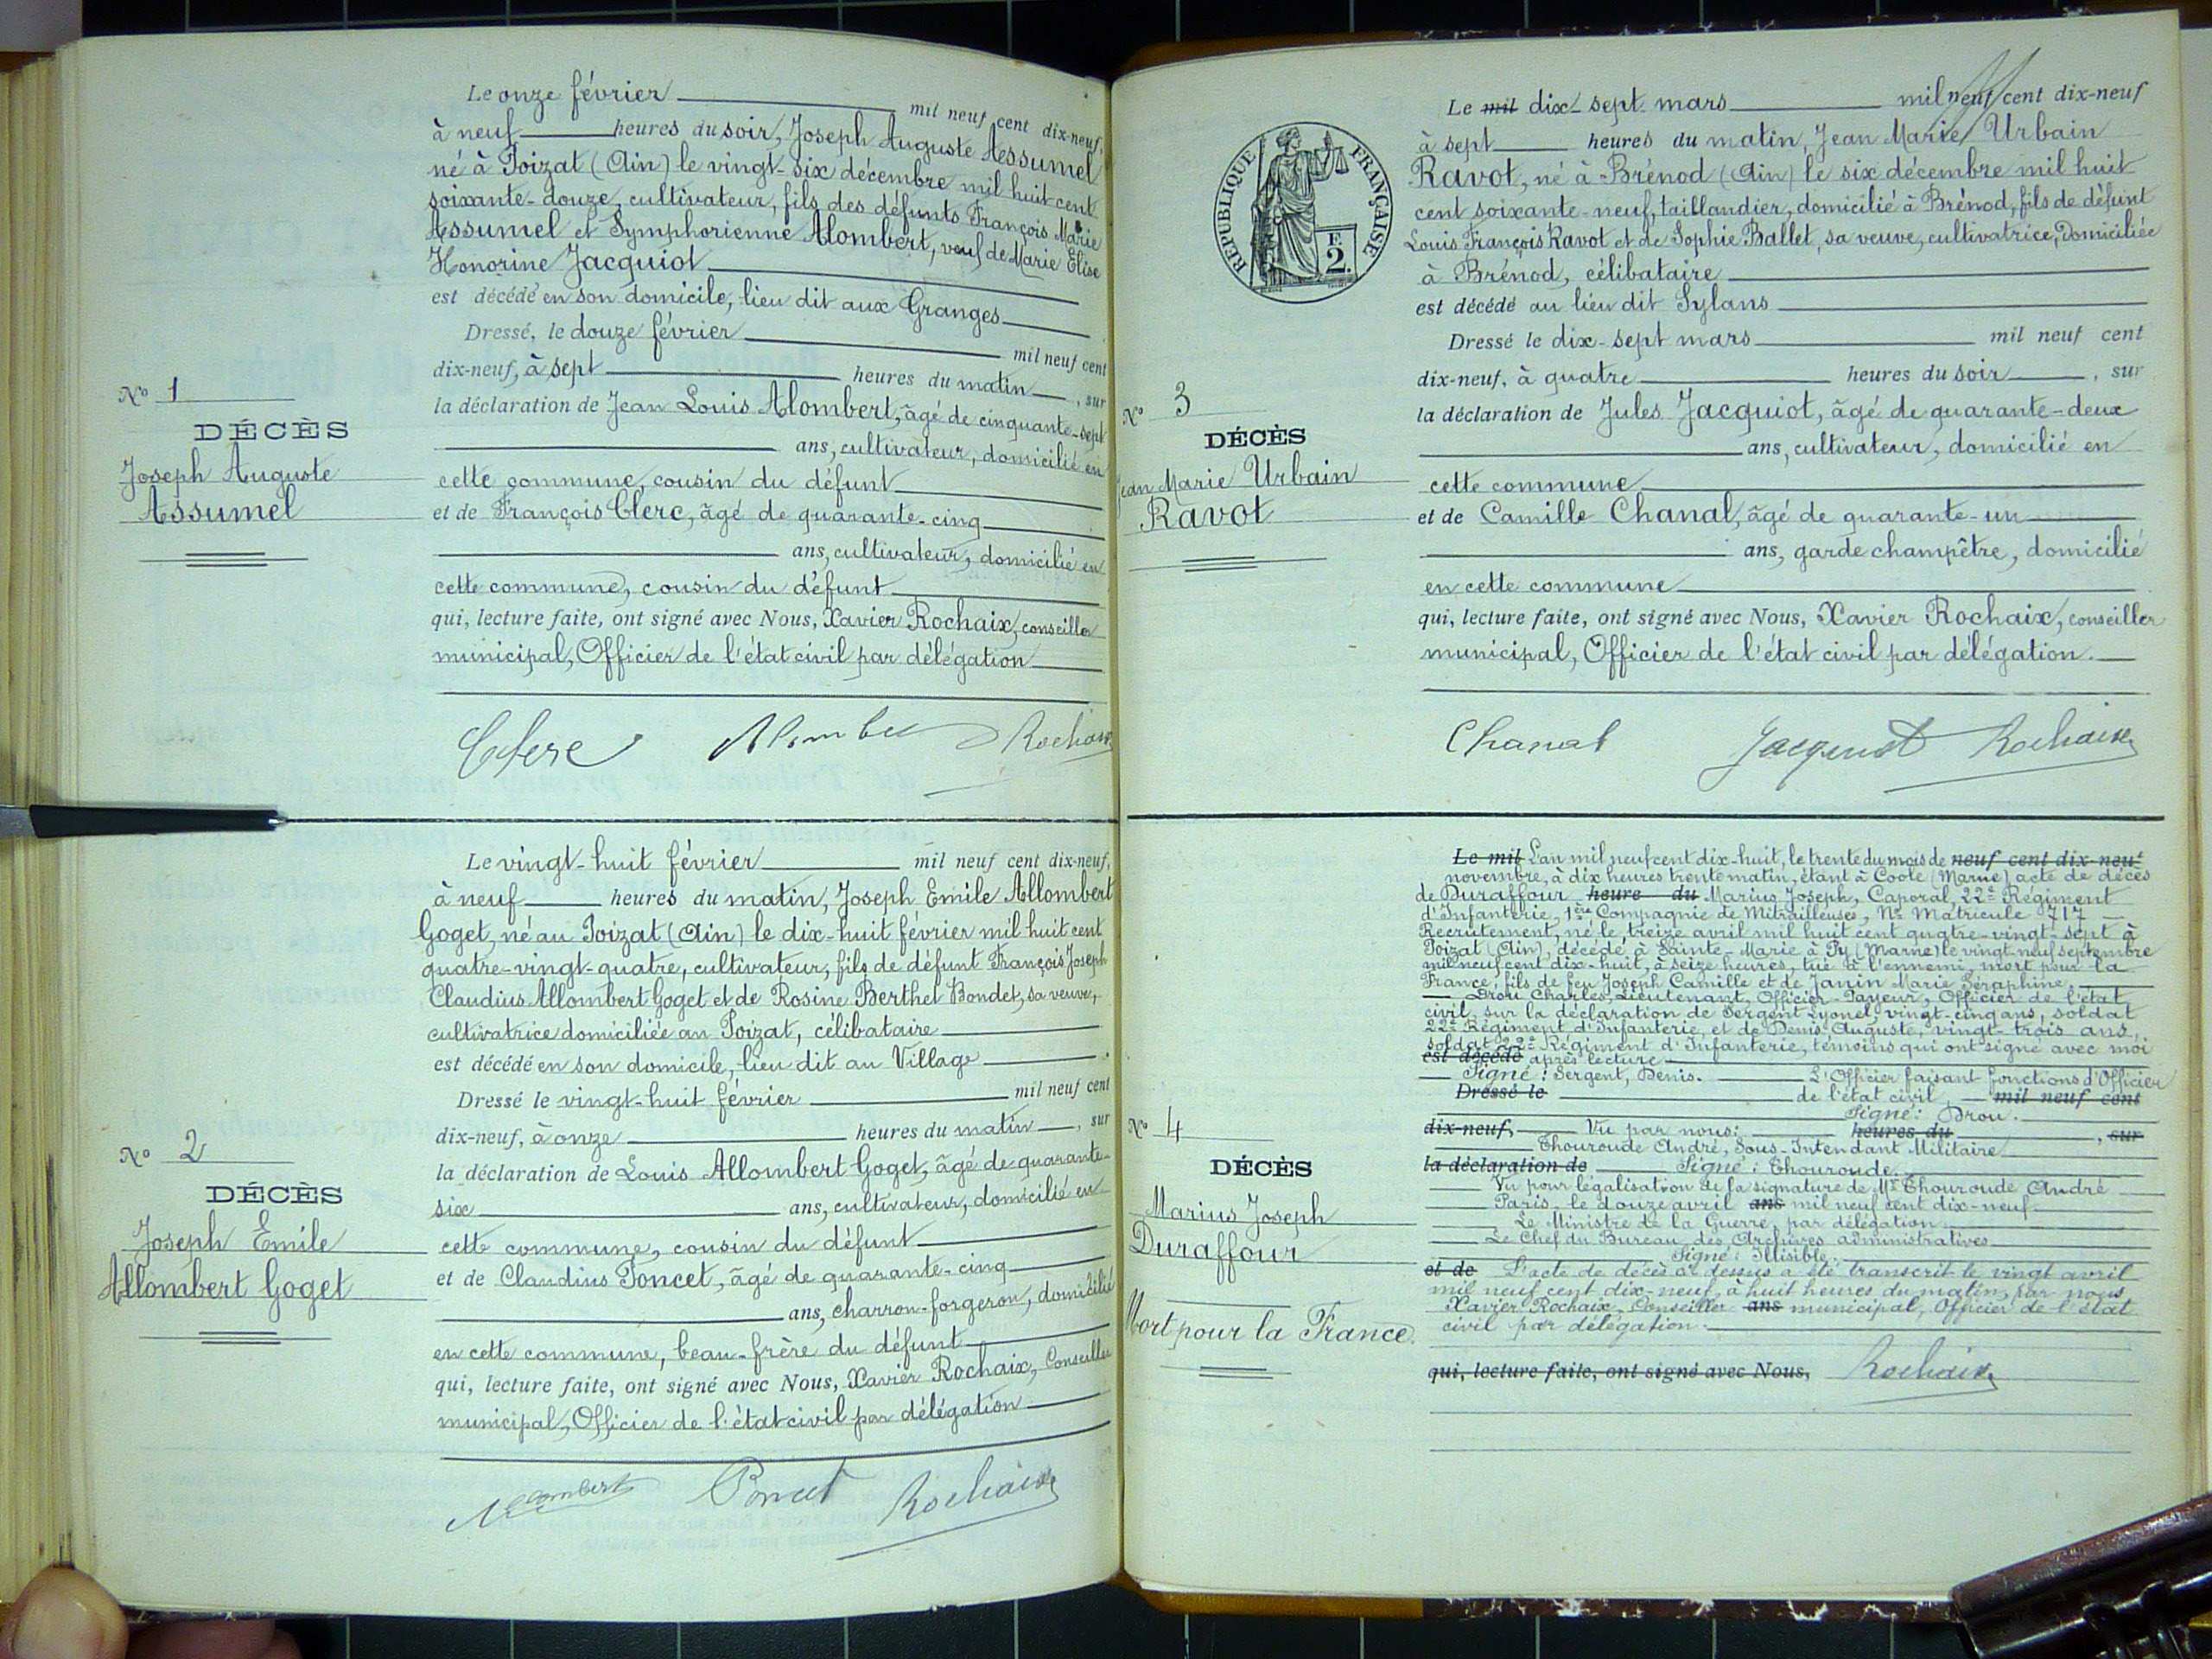 Le onze février mil neuf cent dix-neuf,
à neuf heures du soir, Joseph Auguste Assumel
né à Poizat (Ain) le vingt-six décembre mil huit cent
soixante-douze, cultivateur, fils des défunts François Marie
Assumel et Symphorienne Alombert, veuf de Marie Elise
Honorine Jacquiot
est décédé en son domicile, lieu dit aux Granges
Dressé, le douze février mil neuf cent
dix-neuf, à sept heures du matin, sur
la déclaration de Jean Louis Alombert, âgé de cinquante-sept
ans, cultivateur, domicilié en
cette commune, cousin du défunt
et de François Clerc, âgé de quarante-cinq
ans, cultivateur, domicilié en
cette commune, cousin du défunt
qui, lecture faite, ont signé avec Nous, Xavier Rochaix, conseiller
municipal, Officier de l'état civil par délégation
N° 1
DÉCÈS
Joseph Auguste
Assumel
Clerc Alombert Rochaix
Le vingt-huit février mil neuf cent dix-neuf,
à neuf heures du matin, Joseph Emile Allombert
Goget, né au Poizat (Ain) le dix-huit février mil huit cent
quatre-vingt-quatre, cultivateur, fils de défunt François Joseph
Claudius Allombert Goget et de Rosine Berthet Bondet, sa veuve,
cultivatrice domiciliée au Poizat, célibataire
est décédé en son domicile, lieu dit au Village
Dressé le vingt-huit février mil neuf cent
dix-neuf, à onze heures du matin, sur
la déclaration de Louis Allombert Goget, âgé de quarante-
six ans, cultivateur, domicilié en
cette commune, cousin du défunt
et de Claudius Poncet, âgé de quarante-cinq
ans, charron-forgeron, domicilié
en cette commune, beau-frère du défunt
qui, lecture faite, ont signé avec Nous, Xavier Rochaix, Conseiller
municipal, Officier de l'état civil par délégation
N° 2
DÉCÈS
Joseph Emile
Allombert Goget
Allombert Poncet Rochaix
RÉPUBLIQUE FRANÇAISE
F.
2.
Le mil dix-sept mars mil neuf cent dix-neuf
à sept heures du matin, Jean Marie Urbain
Ravot, né à Brénod (Ain) le six décembre mil huit
cent soixante-neuf, taillandier, domicilié à Brénod, fils de défunt
Louis François Ravot et de Sophie Ballet, sa veuve, cultivatrice, domiciliée
à Brénod, célibataire
est décédé au lieu dit Sylans
Dressé le dix-sept mars mil neuf cent
dix-neuf, à quatre heures du soir, sur
la déclaration de Jules Jacquiot, âgé de quarante-deux
ans, cultivateur, domicilié en
cette commune
et de Camille Chanal, âgé de quarante-un
ans, garde champêtre, domicilié
en cette commune
qui, lecture faite, ont signé avec Nous, Xavier Rochaix, conseiller
municipal, Officier de l'état civil par délégation.
N° 3
DÉCÈS
Jean Marie Urbain
Ravot
Chanal Jacquiot Rochaix
Le mil L'an mil neuf cent dix-huit, le trente du mois de neuf cent dix-neuf
novembre, à dix heures trente matin, étant à Coole (Marne) acte de décès
de Duraffour heure du Marius Joseph, Caporal, 22e Régiment
d'Infanterie, 1ère Compagnie de Mitrailleuses, No Matricule 717
Recrutement, né le treize avril mil huit cent quatre-vingt-sept à
Poizat (Ain), décédé à Sainte-Marie à Py (Marne) le vingt-neuf septembre
mil neuf cent dix-huit, à seize heures, tué à l'ennemi, mort pour la
France, fils de feu Joseph Camille et de Janin Marie Séraphine,
Drou Charles, Lieutenant, Officier-Payeur, Officier de l'état
civil, sur la déclaration de Sergent Lyonel, vingt-cinq ans, soldat
22e Régiment d'Infanterie, et de Denis Auguste, vingt-trois ans,
soldat 22e Régiment d'Infanterie, témoins qui ont signé avec moi
est décédé après lecture
Signé: Sergent, Denis. L'Officier faisant fonctions d'Officier
Dressé le de l'état civil, mil neuf cent
Signé: Drou.
dix-neuf, Vu par nous: heures du , sur
Thouroude André, Sous-Intendant Militaire
la déclaration de Signé: Thouroude.
Vu pour légalisation de la signature de Mr Thouroude André
Paris, le douze avril ans mil neuf cent dix-neuf
Le Ministre de la Guerre, par délégation
Le Chef du Bureau des Archives administratives
Signé: Illisible.
et de L'acte de décès ci-dessus a été transcrit le vingt avril
mil neuf cent dix-neuf, à huit heures du matin, par nous
Xavier Rochaix, Conseiller ans municipal, Officier de l'état
civil par délégation.
qui, lecture faite, ont signé avec Nous, Rochaix
N° 4
DÉCÈS
Marius Joseph
Duraffour
Mort pour la France.